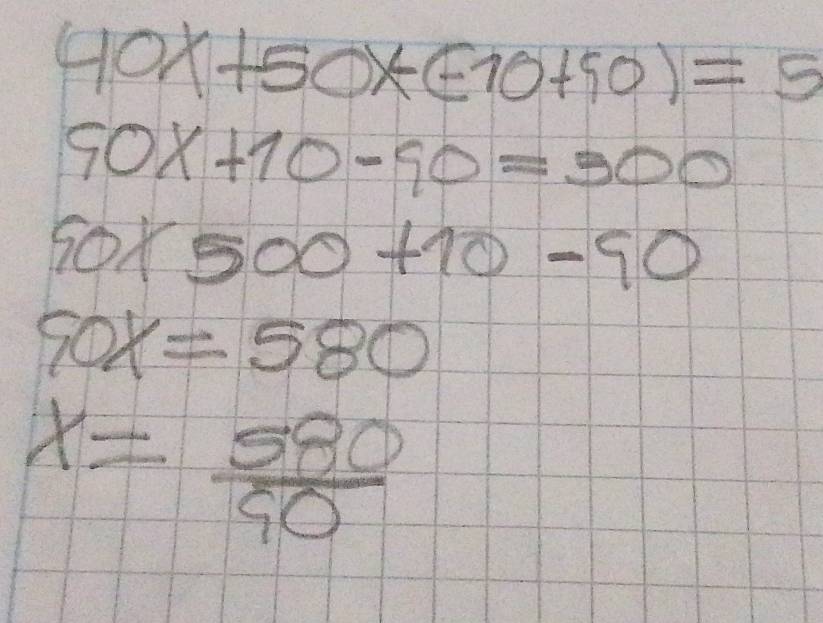 40x+50x-(-10+90)=5
90x+10-90=500
90x 500+10-90
90x=580
x=580/90